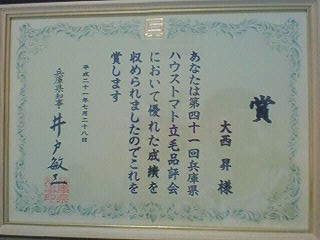 賞
大西 昇 様
あなたは第四十一回兵庫県
ハウストマト立毛品評会
において優れた成績を
収められましたのでこれを
賞します
平成二十一年七月二十八日
兵庫県知事 井戸敏三